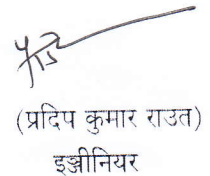 (प्रदिप कुमार राउत)
इञ्जीनियर